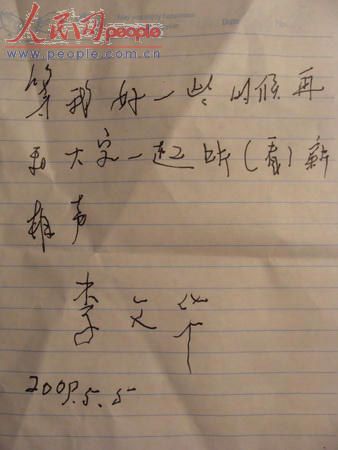 人民网 people
www.people.com.cn
等我好一些的时候再
和大家一起听(看)新
相声
李文华
2009.5.5